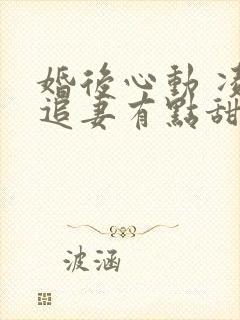 婚後心動
追妻有點甜
波涵